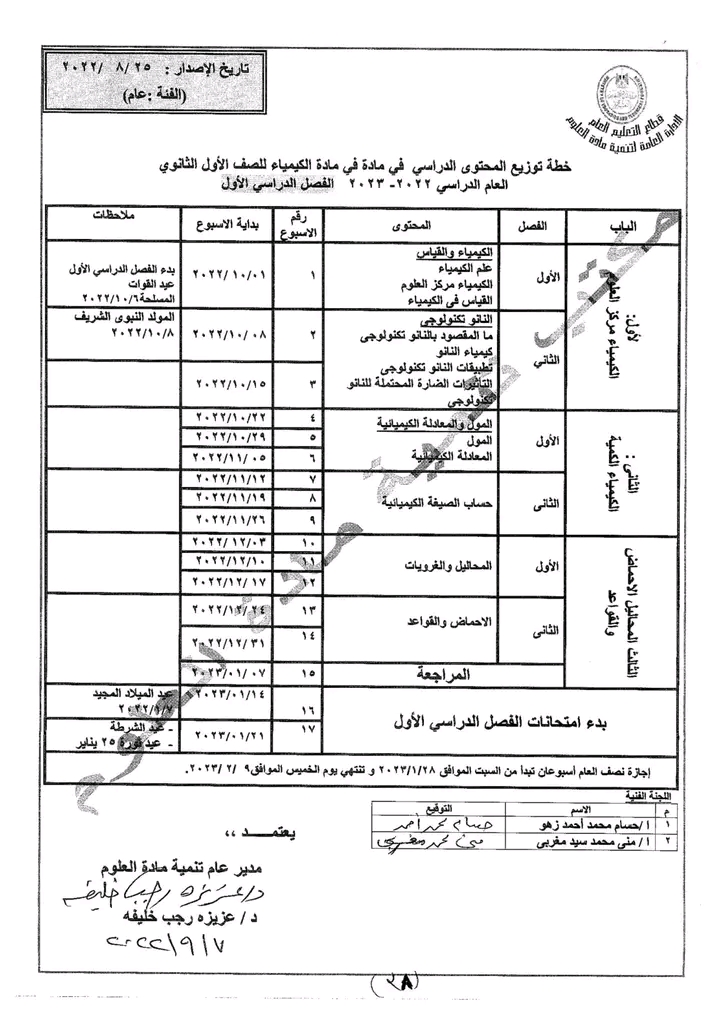 تاريخ الإصدار : ٢٥ /٨ /٢٠٢٢
(الفئة :عام)
قطاع التعليم العام
الإدارة العامة لتنمية مادة العلوم
خطة توزيع المحتوى الدراسي في مادة في مادة الكيمياء للصف الأول الثانوي
العام الدراسي ٢٠٢٢- ٢٠٢٣ الفصل الدراسي الأول
الباب الفصل المحتوى رقم الاسبوع بداية الاسبوع ملاحظات
لأول: الكيمياء مركز العلوم
الأول
الكيمياء والقياس
علم الكيمياء
الكيمياء مركز العلوم
القياس في الكيمياء
١ ٢٠٢٢/١٠/٠١
بدء الفصل الدراسي الأول
عيد القوات
المسلحة٢٠٢٢/١٠/٦
الثاني
النانو تكنولوجى
ما المقصود بالنانو تكنولوجى
كيمياء النانو
تطبيقات النانو تكنولوجى
التأثيرات الضارة المحتملة للنانو
تكنولوجي
٢ ٢٠٢٢/١٠/ ٠٨
المولد النبوى الشريف
٢٠٢٢/١٠/٨
٣ ٢٠٢٢/١٠/١٥
الثانى : الكيمياء الكمية
الأول
المول والمعادلة الكيميائية
المول
المعادلة الكيميائية
٤ ٢٠٢٢/١٠/٢٢
٥ ٢٠٢٢/١٠/٢٩
٦ ٢٠٢٢/١١/ ٠٥
الثانى
حساب الصيغة الكيميائية
٧ ٢٠٢٢/١١/١٢
٨ ٢٠٢٢/١١/١٩
٩ ٢٠٢٢/١١/٢٦
الثالث المحاليل الاحماض والقواعد
الأول
المحاليل والغرويات
١٠ ٢٠٢٢/ ١٢/٠٣
١١ ٢٠٢٢/١٢/١٠
١٢ ٢٠٢٢/١٢/ ١٧
الثانى
الاحماض والقواعد
١٣ ٢٠٢٢/١٢/ ٢٤
١٤ ٢٠٢٢/١٢/ ٣١
المراجعة
١٥ ٢٠٢٣/٠١/ ٠٧
بدء امتحانات الفصل الدراسي الأول
١٦ ٢٠٢٣/٠١/١٤
عيد الميلاد المجيد
١٧ ٢٠٢٣/٠١/٢١
- عيد الشرطة
- عيد ثورة ٢٥ يناير
إجازة نصف العام أسبوعان تبدأ من السبت الموافق ٢٠٢٣/١/٢٨ و تنتهي يوم الخميس الموافق٩ /٢ /٢٠٢٣.
اللجنة الفنية
م الاسم التوقيع
١ ا/حسام محمد أحمد زهو حسام محمد أحمد
٢ ا / منى محمد سيد مغربى منى محمد مغربي
يعتمـــد ،،
مدير عام تنمية مادة العلوم
د/ عزيزه رجب خليفه
د/ عزيزه رجب خليفه
٢٠٢٢/٩/٧
(٢٨)